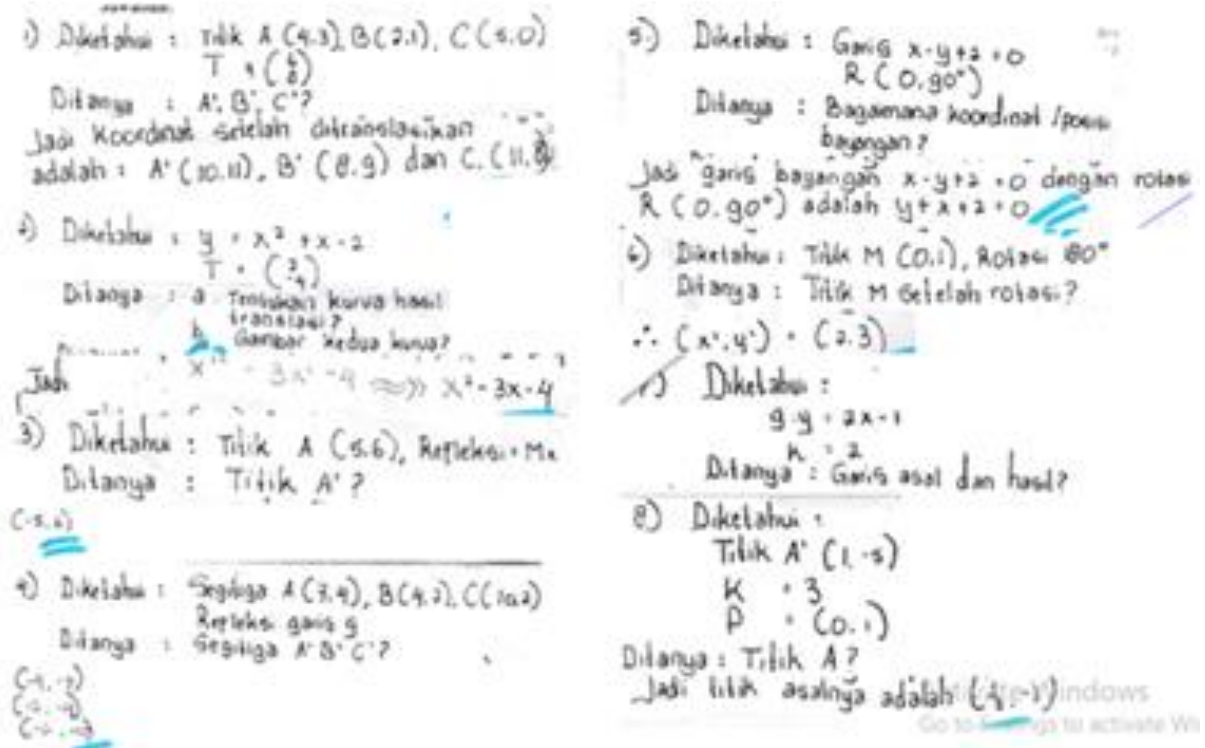 1) Diketahui : Titik A (4.3), B(2.1), C(5.0)
T = (6 8)
Ditanya : A', B', C'?
Jadi Koordinat setelah ditranslasikan
adalah : A' (10.11), B' (8.9) dan C. (11.8)
2) Diketahui : y = x² + x - 2
T =
Ditanya : a Tentukan kurva hasil
translasi?
b. Gambar kedua kurva?
Jadi x² - 3x - 4
3) Diketahui : Titik A (5.6), Refleksi = Mx
Ditanya : Titik A'?
(-5.6)
4) Diketahui : Segitiga A (3,4), B(4,2), C(10,2)
Refleksi garis g
Ditanya : Segitiga A' B' C'?
5.) Diketahui : Garis x-y+2=0
R (0.90°)
Ditanya : Bagamana koordinat /posisi
bayangan?
Jadi garis bayangan x-y+2=0 dengan rotasi
R (0.90°) adalah y+x+2=0
6) Diketahui : Titik M (0.1), Rotasi 180°
Ditanya : Titik M setelah rotasi?
∴ (x',y') = (2.3)
Diketahui :
g.y = 2x-1
k = 2
Ditanya : Garis asal dan hasil?
8) Diketahui :
Titik A' (1.-5)
K = 3
P = (0.1)
Ditanya : Titik A?
Jadi titik asalnya adalah
Windows
Go to to activate